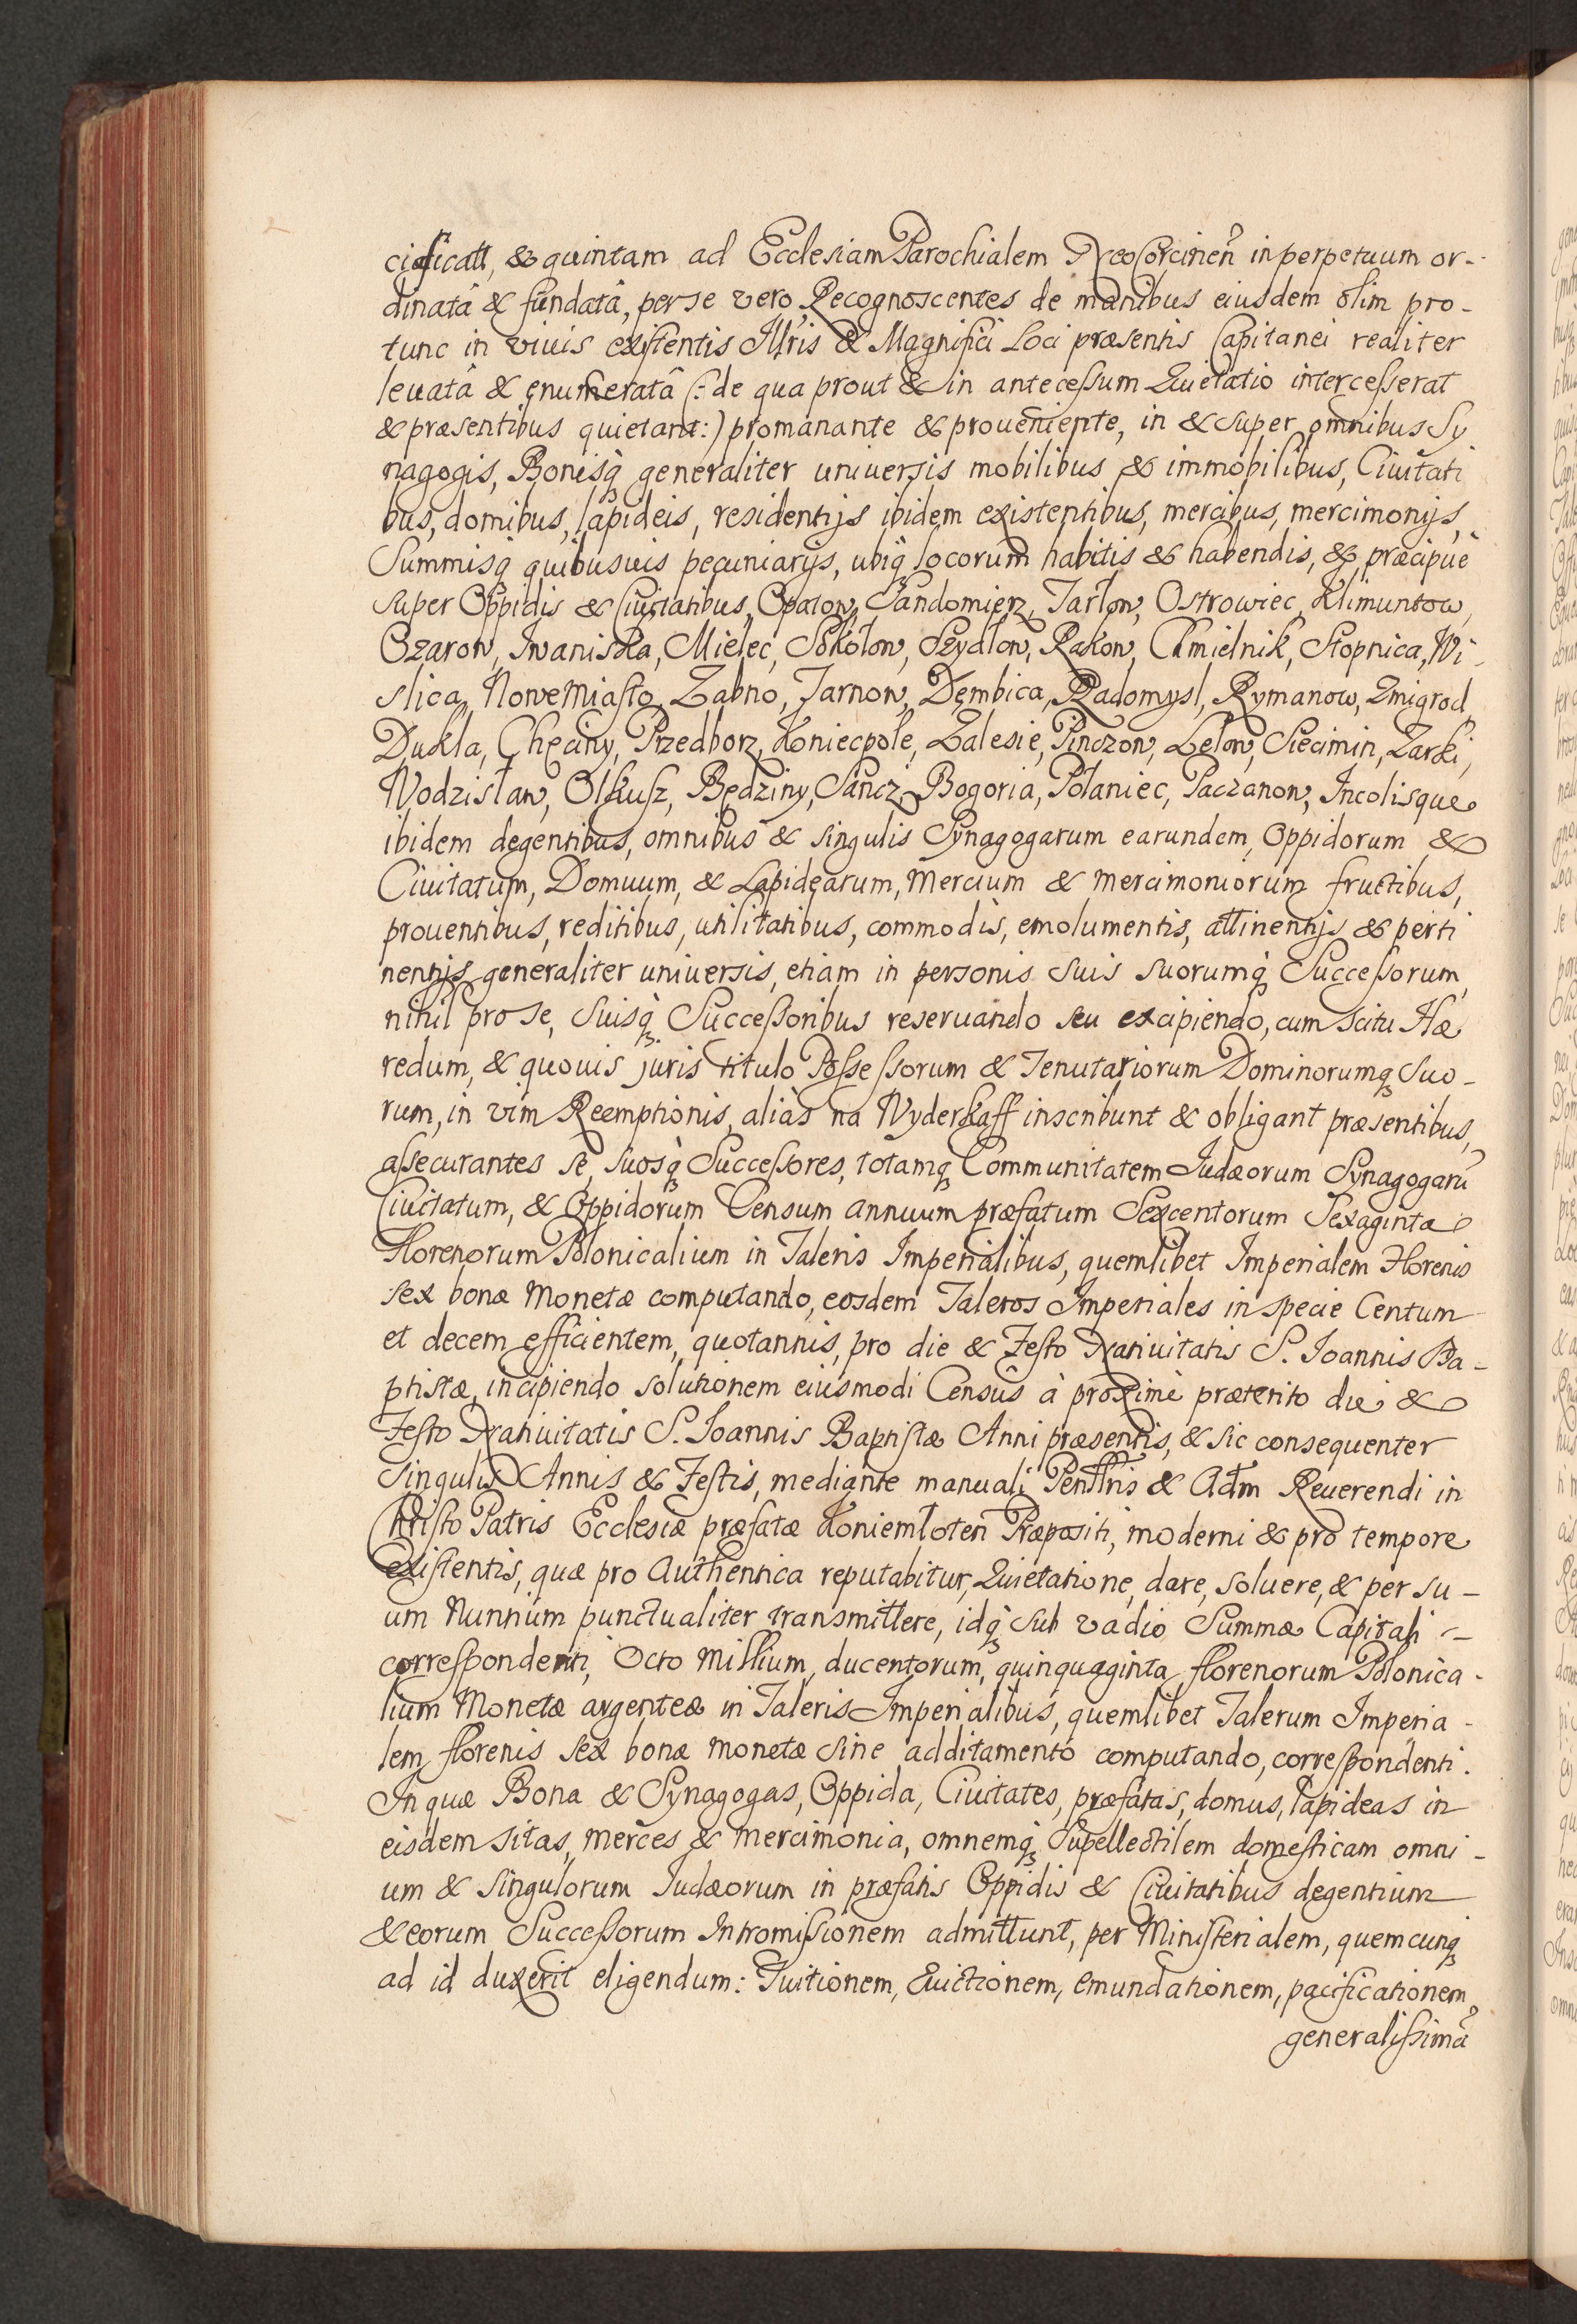 cificatt, & quintam ad Ecclesiam Parochialem NeoCorcineñ in perpetuum or-
dinatâ & fundatâ, per se vero Recognoscentes de manibus eiusdem olim pro-
tunc in viuis existentis Illris & Magnifici Loci præsentis Capitanei realiter
leuatâ & enumeratâ (: de qua prout & in antecessum Quietatio intercesserat
& præsentibus quietant:) promanante & proueniente, in & super omnibus Sy
nagogis, Bonisq; generaliter uniuersis mobilibus & immobilibus, Ciuitati
bus, domibus, lapideis, residentijs ibidem existentibus, mercibus, mercimonijs,
Summisq; quibusuis pecuniarijs, ubiq; locorum habitis & habendis, & præcipuè
super Oppidis & Ciuitatibus, Opatow, Sandomierz, Tarłow, Ostrowiec, Klimuntow,
Ozarow, Iwaniska, Mielec, Sokołow, Szydłow, Rakow, Chmielnik, Stopnica, Wi-
slica, Nowe Miasto, Zabno, Tarnow, Dembica, Radomysl, Rymanow, Zmigrod,
Dukla, Chęciny, Przedborz, Koniecpole, Zalesie, Pinczow, Lelow, Siecimin, Zarki,
Wodzisław, Olkusz, Będziny, Sancz, Bogoria, Połaniec, Paczanow, Incolisque
ibidem degentibus, omnibus & singulis Synagogarum earundem, Oppidorum &
Ciuitatum, Domuum, & Lapidearum, Mercium & mercimoniorum fructibus,
prouentibus, reditibus, utilitatibus, commodis, emolumentis, attinentijs & perti
nentijs generaliter uniuersis, etiam in personis suis suorumq; Successorum,
nihil pro se, suisq; Successoribus reseruando seu excipiendo, cum scitu Hæ
redum, & quouis juris titulo Possessorum & Tenutariorum Dominorumq; suo-
rum, in vim Reemptionis, aliàs na Wyderkaff inscribunt & obligant præsentibus,
assecurantes se, suosq; Successores, totamq; Communitatem Iudæorum Synagogarũ
Ciuitatum, & Oppidorum Censum annuum præfatum Sexcentorum Sexaginta
Florenorum Polonicalium in Taleris Imperialibus, quemlibet Imperialem Florenis
sex bonæ Monetæ computando, eosdem Taleros Imperiales in specie Centum
et decem efficientem, quotannis, pro die & Festo Natiuitatis S. Joannis Ba-
ptistæ, incipiendo solutionem eiusmodi Censûs à proximè præterito die &
Festo Natiuitatis S. Joannis Baptistæ Anni præsentis, & sic consequenter
singulis Annis & Festis, mediante manuali Penttris & Adm Reuerendi in
Christo Patris Ecclesiæ præfatæ Koniemłoteñ Præpositi, moderni & pro tempore
existentis, quæ pro Authentica reputabitur, Quietatione, dare, soluere, & per su-
um Nuntium punctualiter transmittere, idq; sub vadio Summæ Capitali
correspondenti, Octo Millium, ducentorum, quinquaginta florenorum Polonica-
lium Monetæ argenteæ in Taleris Imperialibus, quemlibet Talerum Imperia-
lem florenis sex bonæ monetæ sine additamento computando, correspondenti.
In quæ Bona & Synagogas, Oppida, Ciuitates, præfatas, domus, lapideas in
eisdem sitas, merces & mercimonia, omnemq; Supellectilem domesticam omni-
um & singulorum Iudæorum in præfatis Oppidis & Ciuitatibus degentium
& eorum Successorum Intromissionem admittunt, per Ministerialem, quemcunq;
ad id duxerit eligendum: Tuitionem, Euictionem, emundationem, pacificationem,
generalissimã